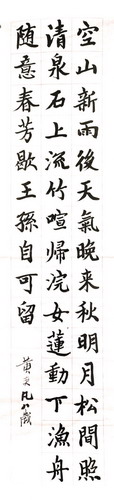 空山新雨後天氣晚来秋明月松間照
清泉石上流竹喧帰浣女蓮動下漁舟
随意春芳歇王孫自可留
黄 凡八歲